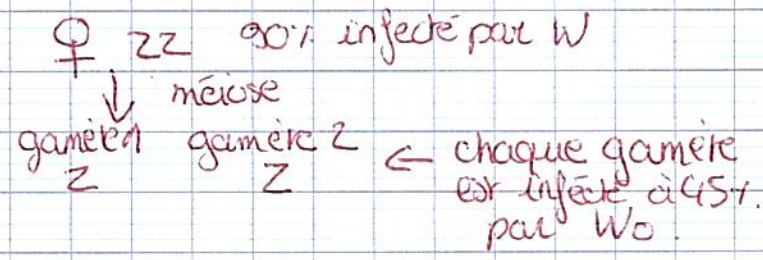 ♀ ZZ 90% infecté par W
↓ méiose
gamète 1 gamète 2 ← chaque gamète
Z Z est infecté à 45%
par Wo.